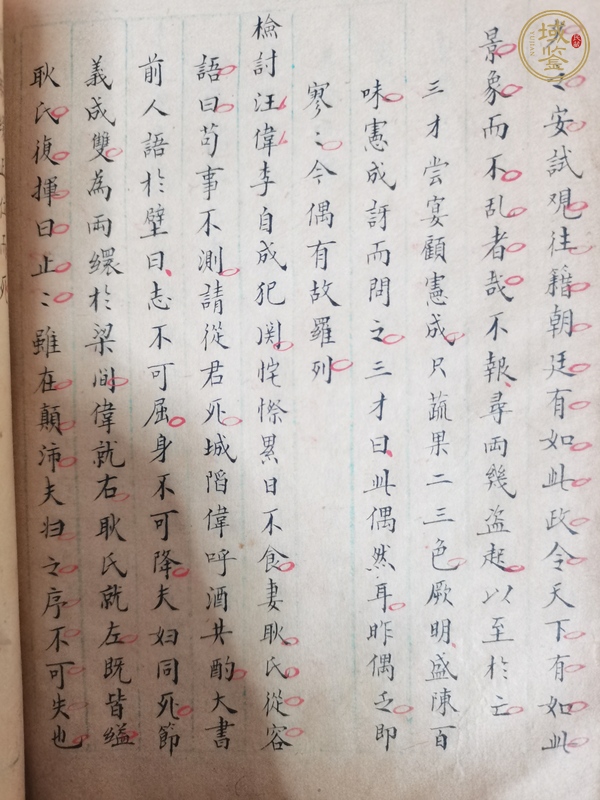 之安試覌往籍朝廷有如此政令天下有如此
景象而不乱者哉不報尋两畿盗起以至於亡
三才尝宴顧憲成只蔬果二三色厥明盛陳百
味憲成訝而問之三才曰此偶然耳昨偶乏即
寥〻今偶有故羅列
檢討汪偉李自成犯関恠慘累日不食妻耿氏從容
語曰苟事不測請從君死城陷偉呼酒共酌大書
前人語於壁曰志不可屈身不可降夫妇同死節
義成雙為两繯於梁间偉就右耿氏就左既皆縊
耿氏復揮曰止〻雖在顛沛夫妇之序不可失也
域鑒
YUJIAN